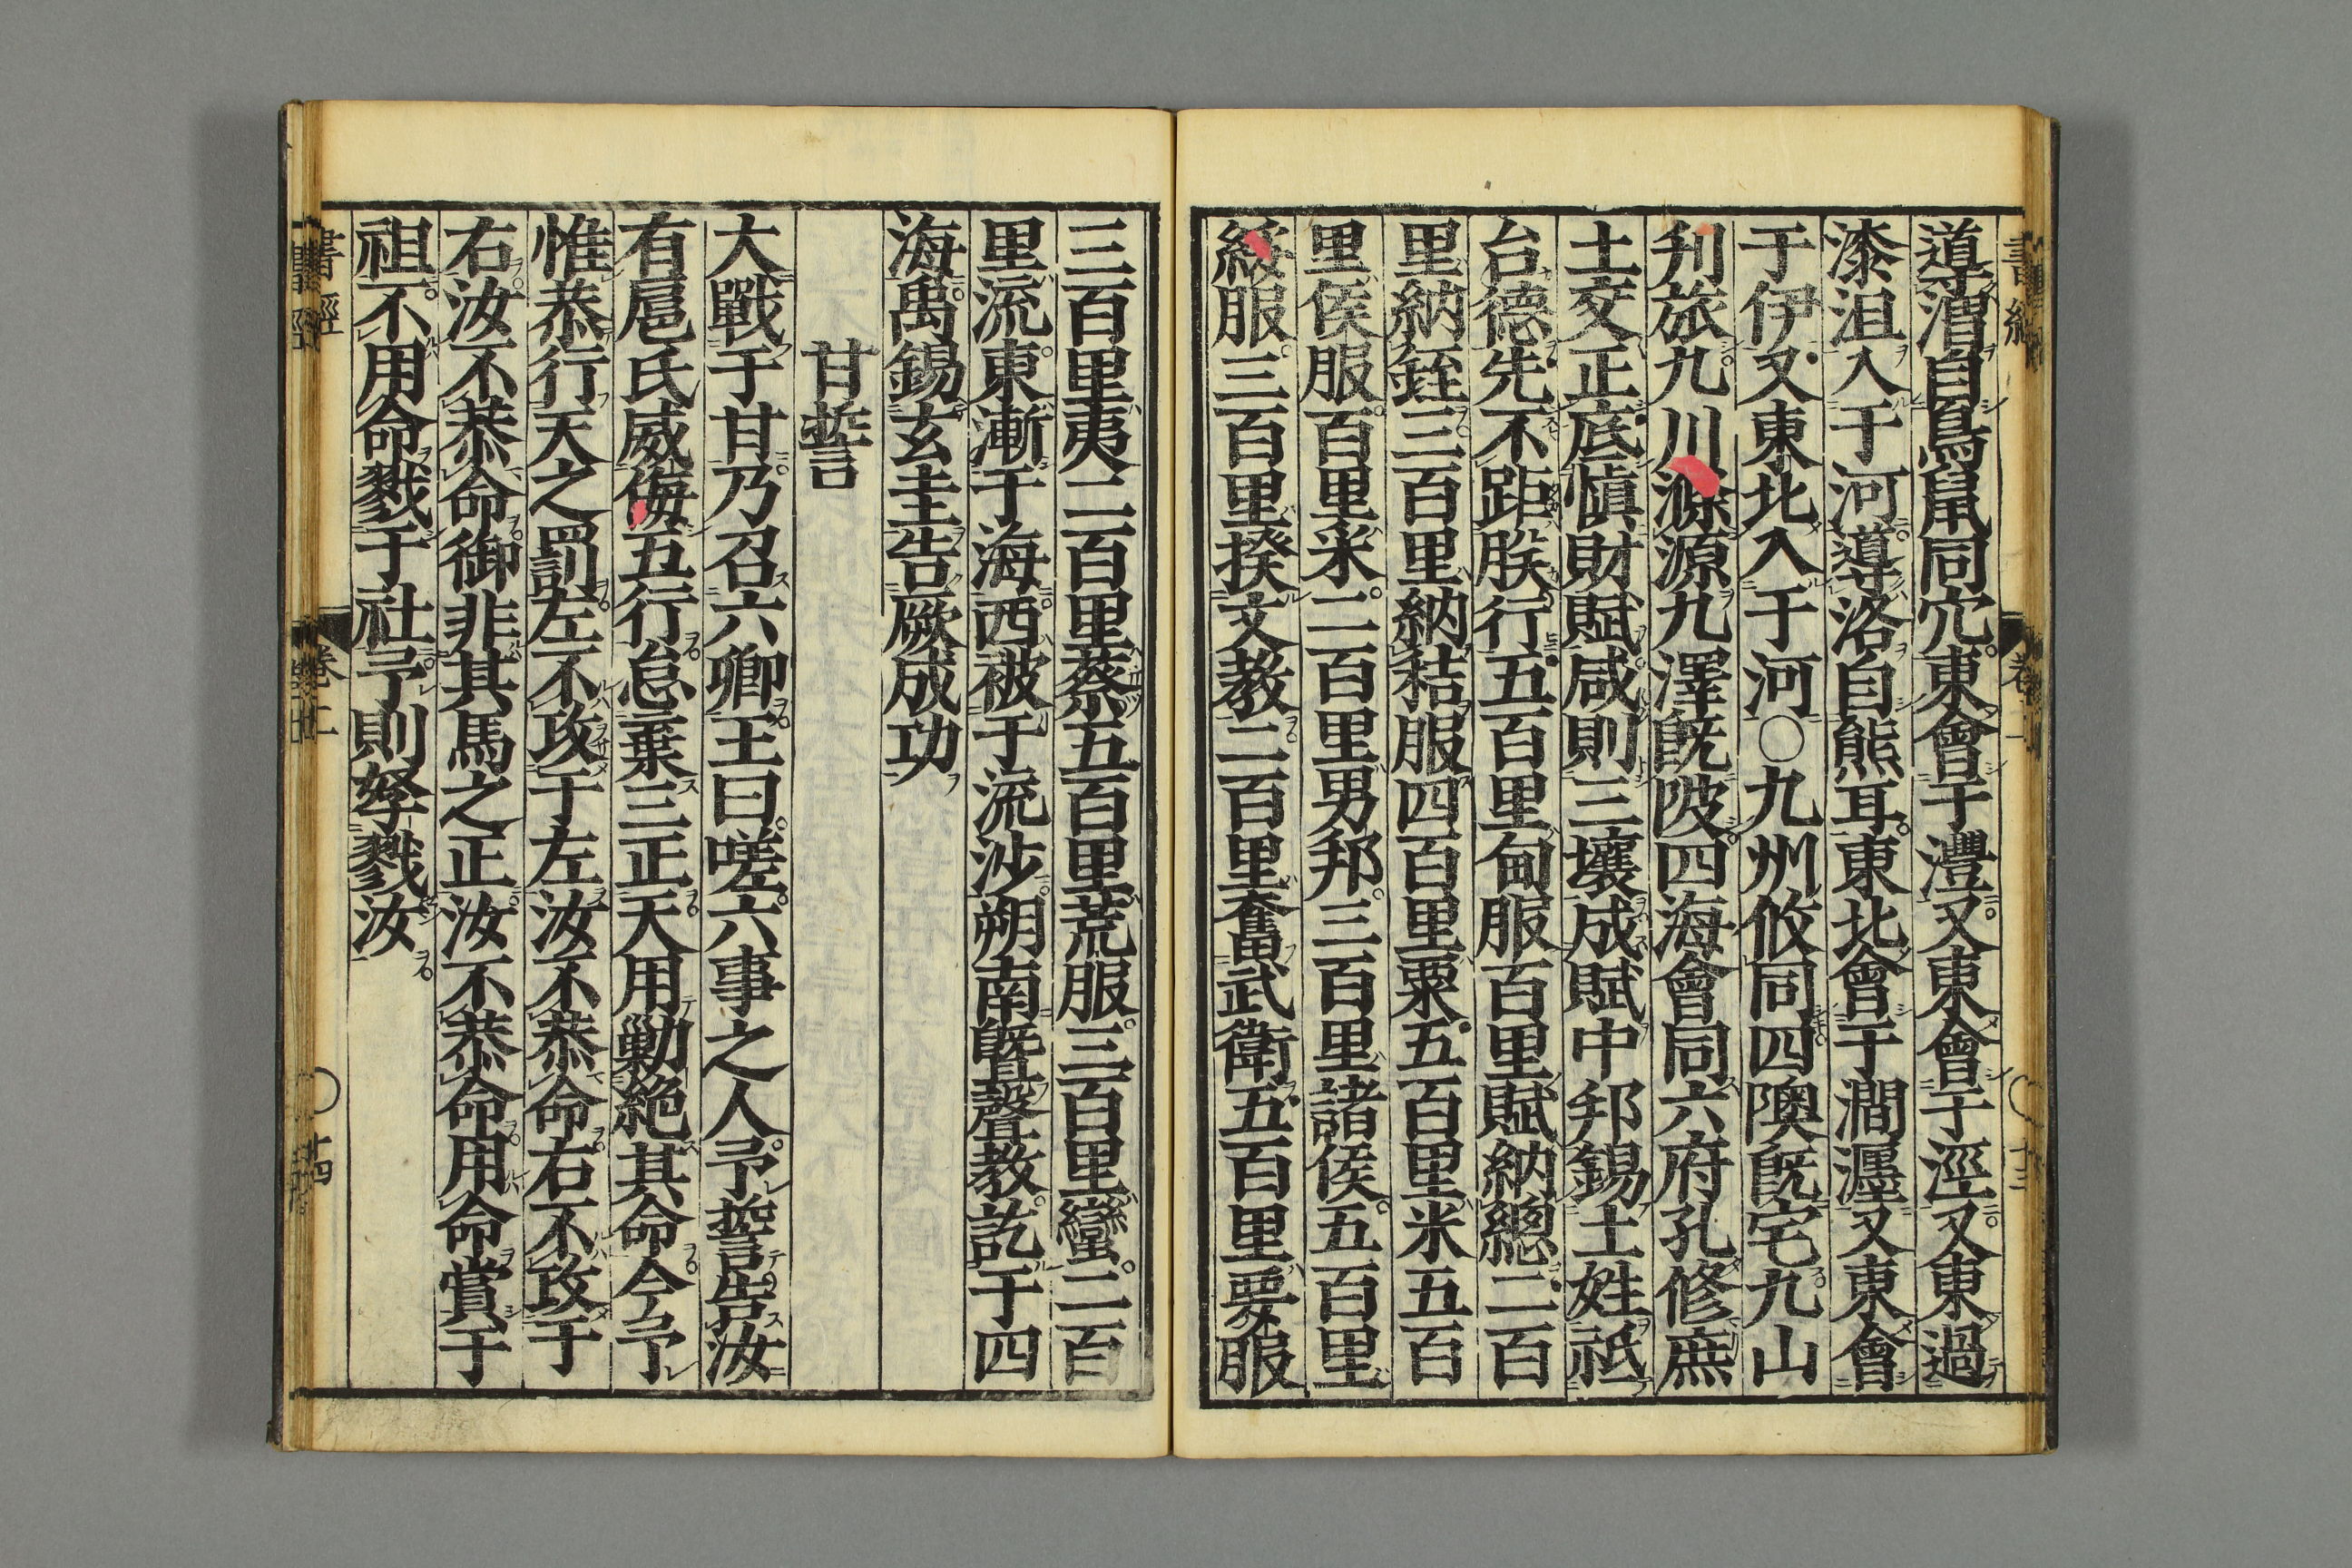 導渭自鳥鼠同穴東會于灃又東會于涇又東過
漆沮入于河導洛自熊耳東北會于澗瀍又東會
于伊又東北入于河〇九州攸同四隩既宅九山
刋旅九川滌源九澤既陂四海會同六府孔修庶
土交正底慎財賦咸則三壤成賦中邦錫土姓祗
台德先不距朕行五百里甸服百里賦納總二百
里納銍三百里納秸服四百里粟五百里米五百
里侯服百里采二百里男邦三百里諸侯五百里
綏服三百里揆文教二百里奮武衛五百里要服
三百里夷二百里蔡五百里荒服三百里蠻二百
里流東漸于海西被于流沙朔南曁聲教訖于四
海禹錫玄圭告厥成功
甘誓
大戰于甘乃召六卿王曰嗟六事之人予誓告汝
有扈氏威侮五行怠棄三正天用勦絶其命今予
惟恭行天之罰左不攻于左汝不恭命右不攻于
右汝不恭命御非其馬之正汝不恭命用命賞于
祖不用命戮于社予則孥戮汝
書經 卷二 〇 十四